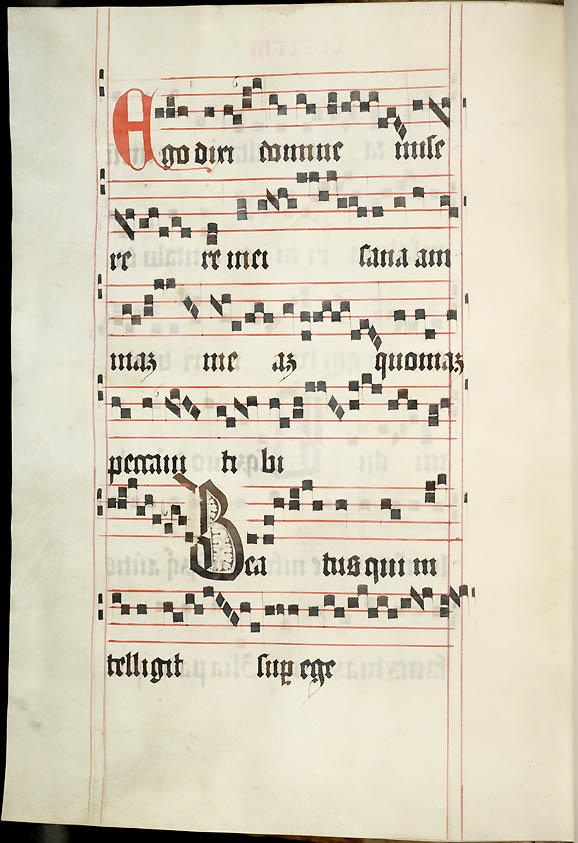 Ego dixi domine mise
re re mei sana am
maꝫ me aꝫ quoniaꝫ
peccaui ti bi
Bea tus qui in
telligit suꝑ ege